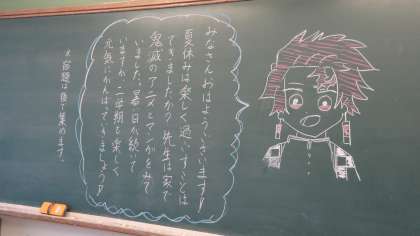 みなさんおはようございます！
夏休みは楽しく過ごすことは
できましたか？先生は家で
鬼滅のアニメとマンガをみて
いました。暑い日が続いて
いますが、二学期も楽しく
元気にがんばっていきましょう！
※宿題は後で集めます。